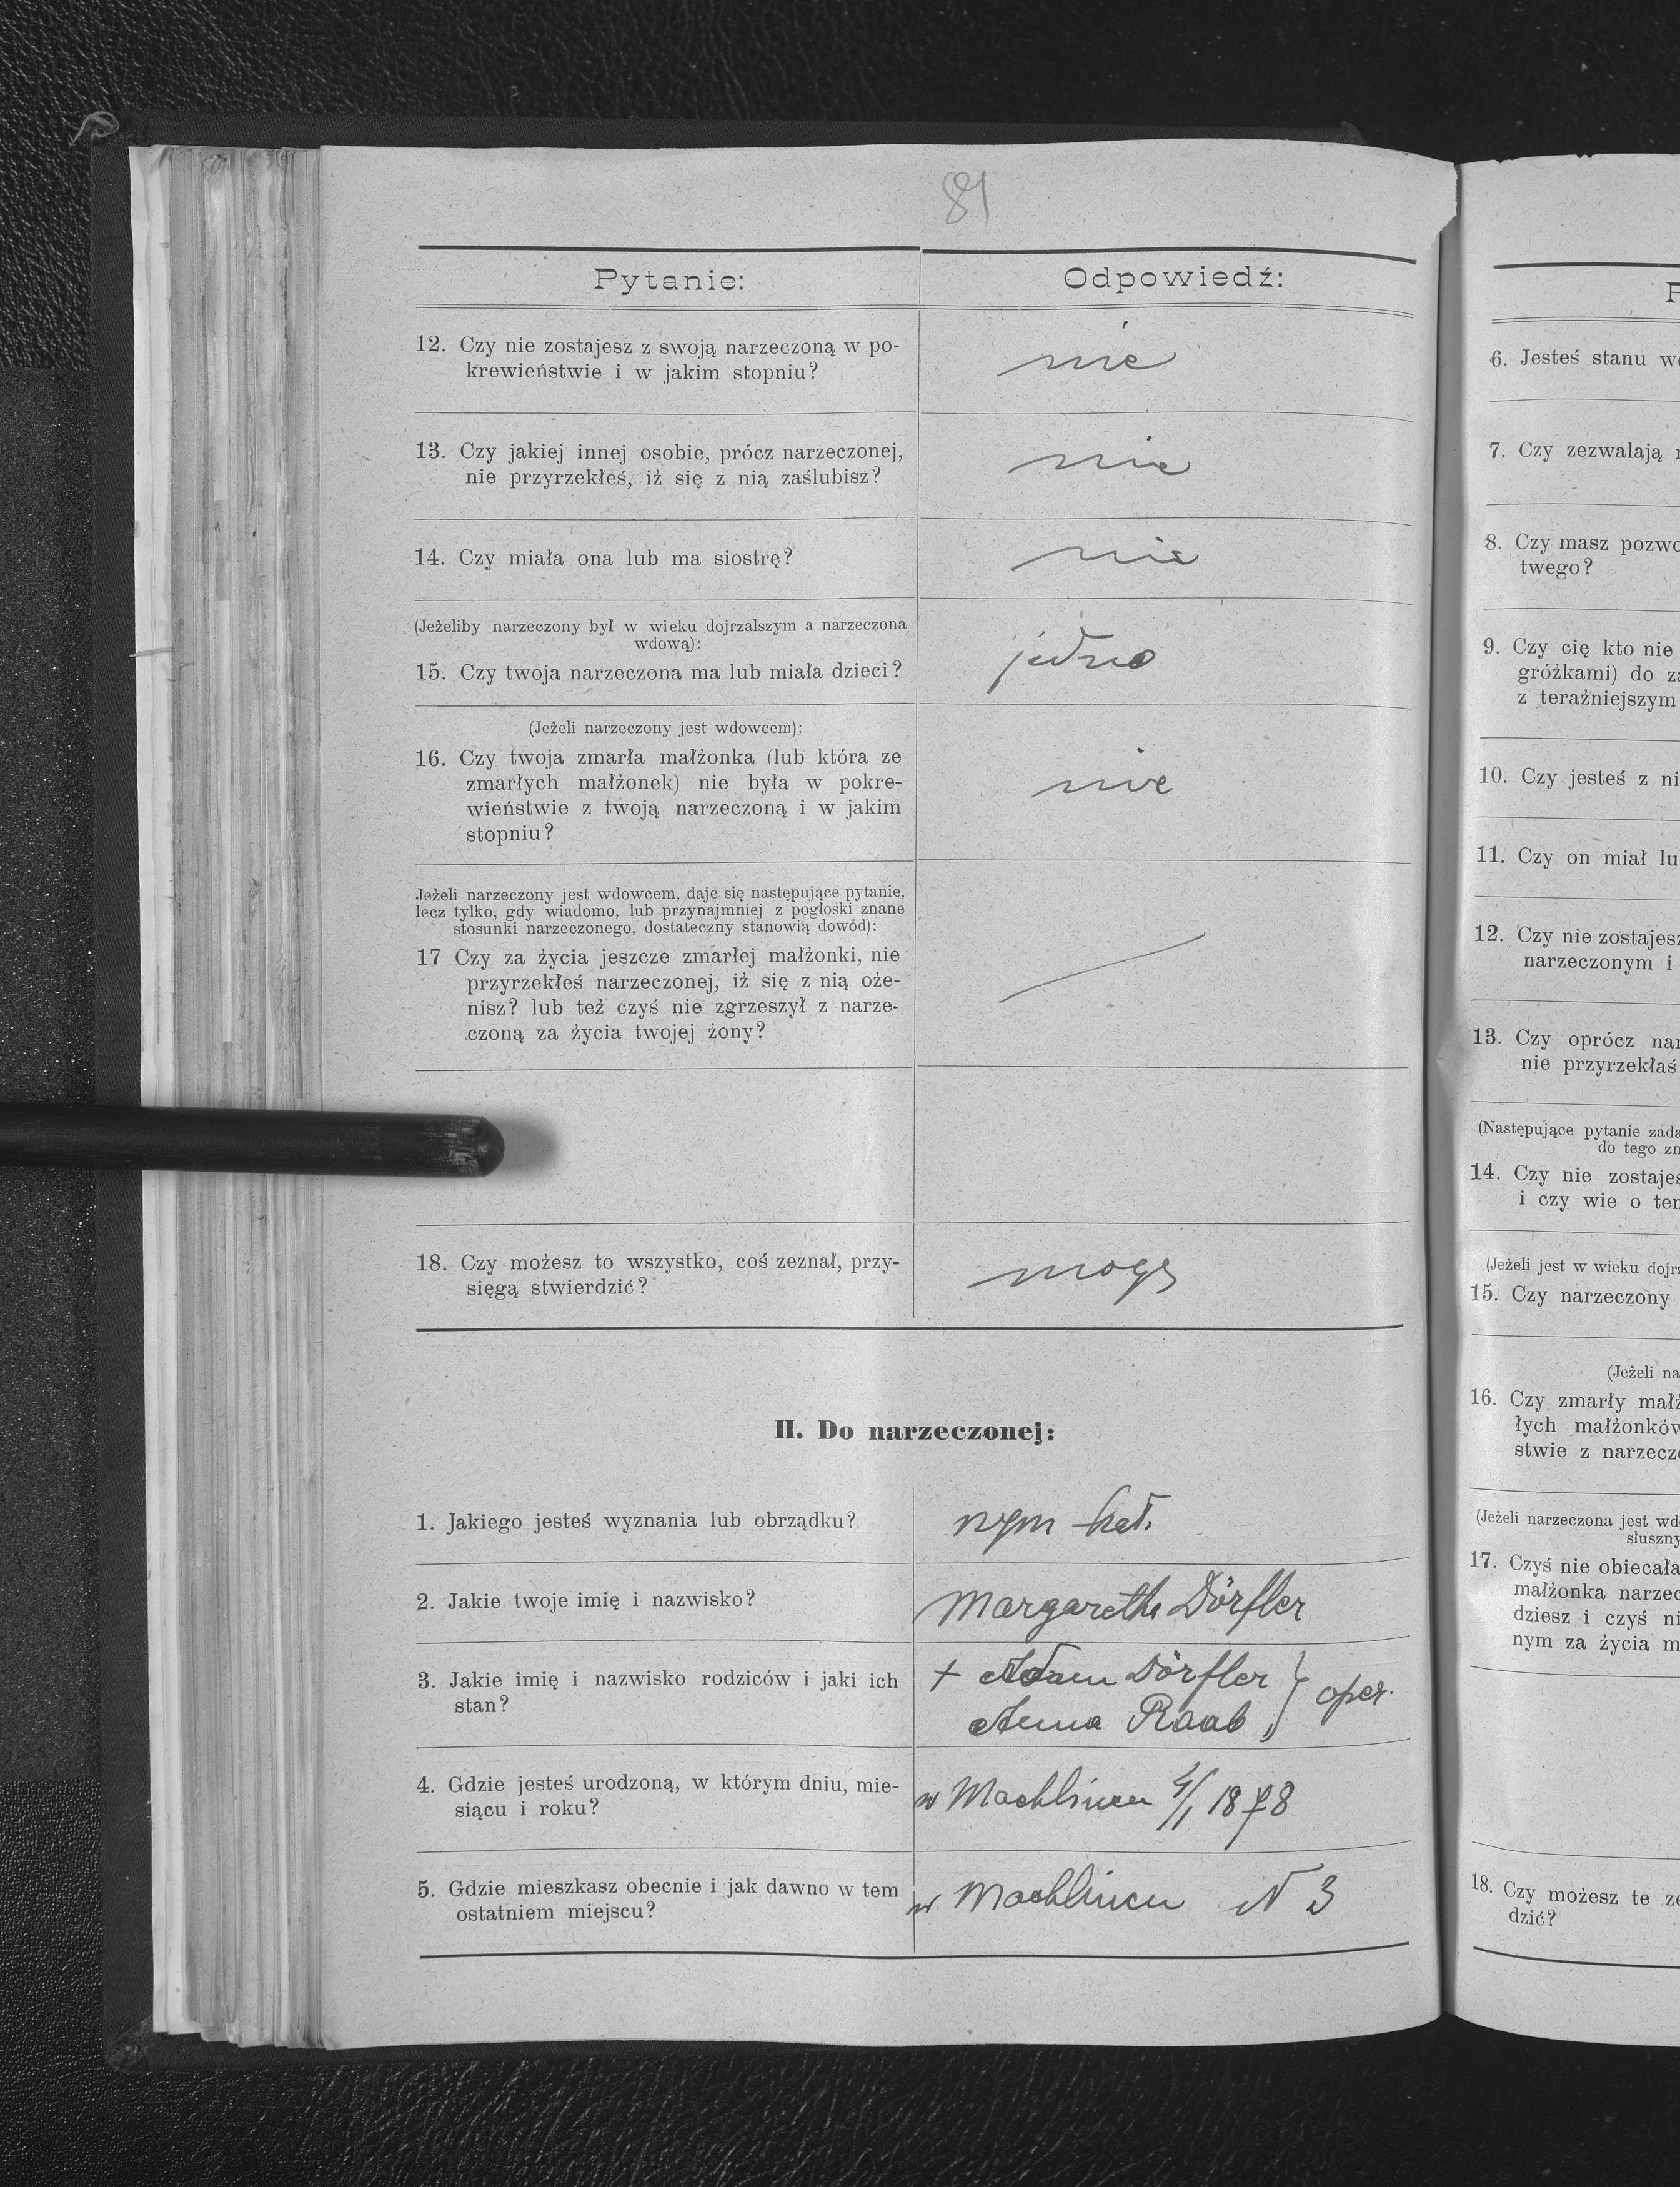 81
Pytanie:
Odpowiedź:
12. Czy nie zostajesz z swoją narzeczoną w po-
krewieństwie i w jakim stopniu?
nie
13. Czy jakiej innej osobie, prócz narzeczonej,
nie przyrzekłeś, iż się z nią zaślubisz?
nie
14. Czy miała ona lub ma siostrę?
nie
(Jeżeliby narzeczony był w wieku dojrzalszym a narzeczona
wdową):
15. Czy twoja narzeczona ma lub miała dzieci?
jedno
(Jeżeli narzeczony jest wdowcem):
16. Czy twoja zmarła małżonka (lub która ze
zmarłych małżonek) nie była w pokre-
wieństwie z twoją narzeczoną i w jakim
stopniu?
nie
Jeżeli narzeczony jest wdowcem, daje się następujące pytanie,
lecz tylko, gdy wiadomo, lub przynajmniej z pogłoski znane
stosunki narzeczonego, dostateczny stanowią dowód):
17 Czy za życia jeszcze zmarłej małżonki, nie
przyrzekłeś narzeczonej, iż się z nią oże-
nisz? lub też czyś nie zgrzeszył z narze-
czoną za życia twojej żony?
18. Czy możesz to wszystko, coś zeznał, przy-
sięgą stwierdzić?
mogę
II. Do narzeczonej:
1. Jakiego jesteś wyznania lub obrządku?
rzym kat.
2. Jakie twoje imię i nazwisko?
Margareth Dörfler
3. Jakie imię i nazwisko rodziców i jaki ich
stan?
+ Adam Dörfler
Anna Raab } oper.
4. Gdzie jesteś urodzoną, w którym dniu, mie-
siącu i roku?
w Machlińcu 4/1 1878
5. Gdzie mieszkasz obecnie i jak dawno w tem
ostatniem miejscu?
w Machlińcu N 3
6. Jesteś stanu
7. Czy zezwalają
8. Czy masz
twego?
9. Czy cię kto nie
gróżkami) do
z teraźniejszym
10. Czy jesteś z
11. Czy on miał
12. Czy nie zostajesz
narzeczonym i
13. Czy oprócz
nie przyrzekłaś
(Następujące pytanie
do tego
14. Czy nie
i czy wie o
(Jeżeli jest w wieku
15. Czy narzeczony
(Jeżeli
16. Czy zmarły
łych
stwie z
(Jeżeli narzeczona jest
17. Czyś nie
małżonka
dziesz i czyś
nym za życia
18. Czy możesz te
dzić?